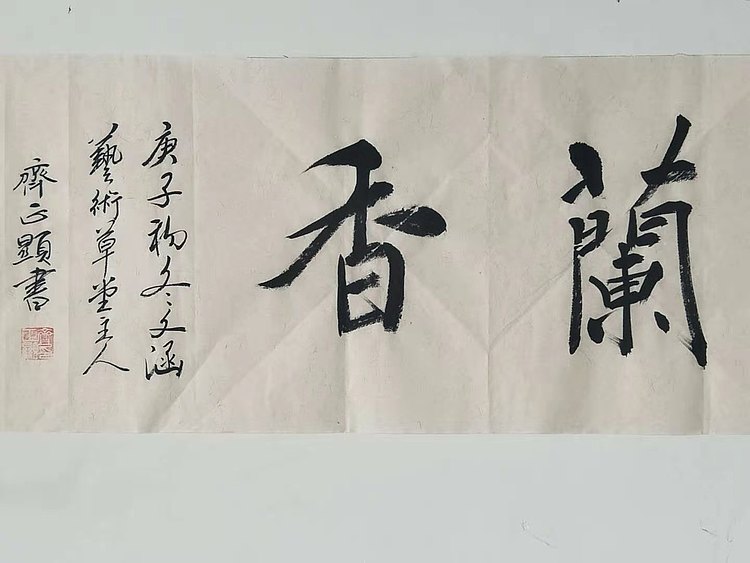 蘭香
庚子初冬文涵
藝術草堂主人
齊正顯書